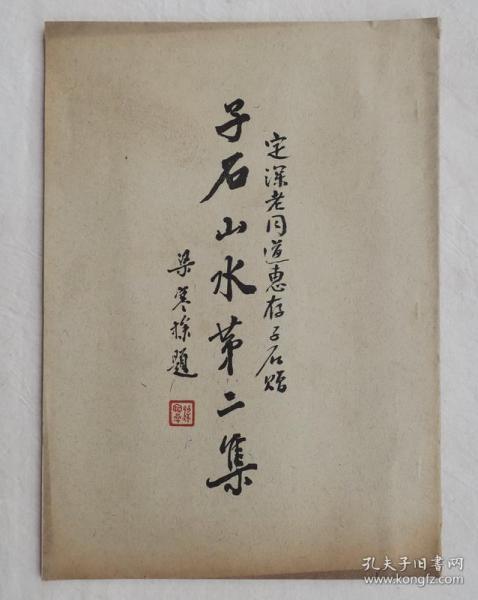 定深老同道惠存 子石贈
子石山水第二集
梁寒操題
孔夫子旧书网
www.kongfz.com